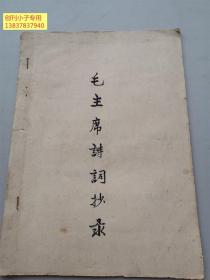 创刊小子专用
13837837940
毛主席詩詞抄录